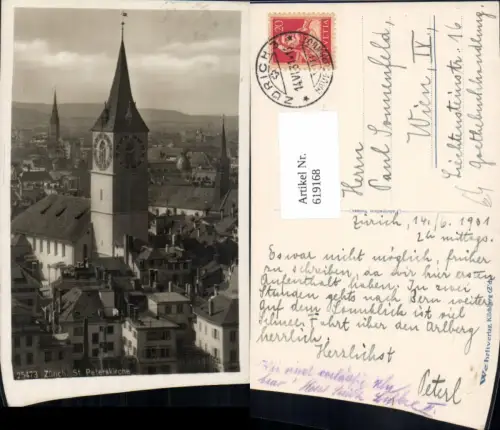 25473 Zürich. St. Peterskirche
Artikel Nr.
619168
20
HELVETIA
ZÜRICH
Herrn
Paul Sonnenfeld,
Wien, IV,
Liechtensteinstr. 16
Goethebuchhandlung.
Zürich, 14./6. 1931
2h mittags.
Es war nicht möglich, früher
zu schreiben, da wir hier ersten
Aufenthalt haben. In zwei
Stunden gehts nach Bern weiter.
Auf dem Sonnblick ist viel
Schnee. Fahrt über den Arlberg
herrlich.
Herzlichst
Peterl